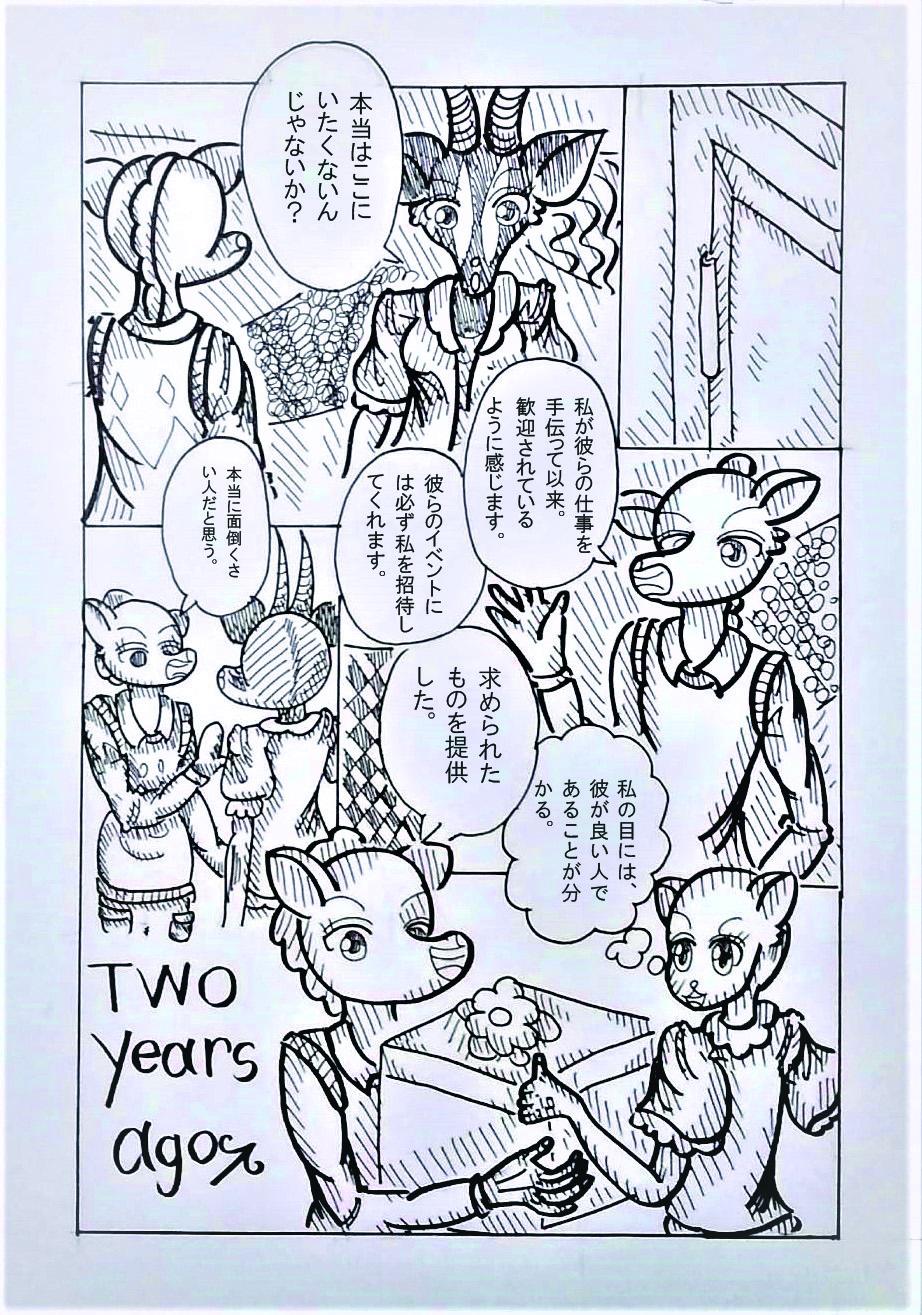 本当はここに
いたくないん
じゃないか？
私が彼らの仕事を
手伝って以来。
歓迎されている
ように感じます。
彼らのイベントに
は必ず私を招待し
てくれます。
本当に面倒くさ
い人だと思う。
求められた
ものを提供
した。
私の目には、
彼が良い人で
あることが分
かる。
TWO
years
ago